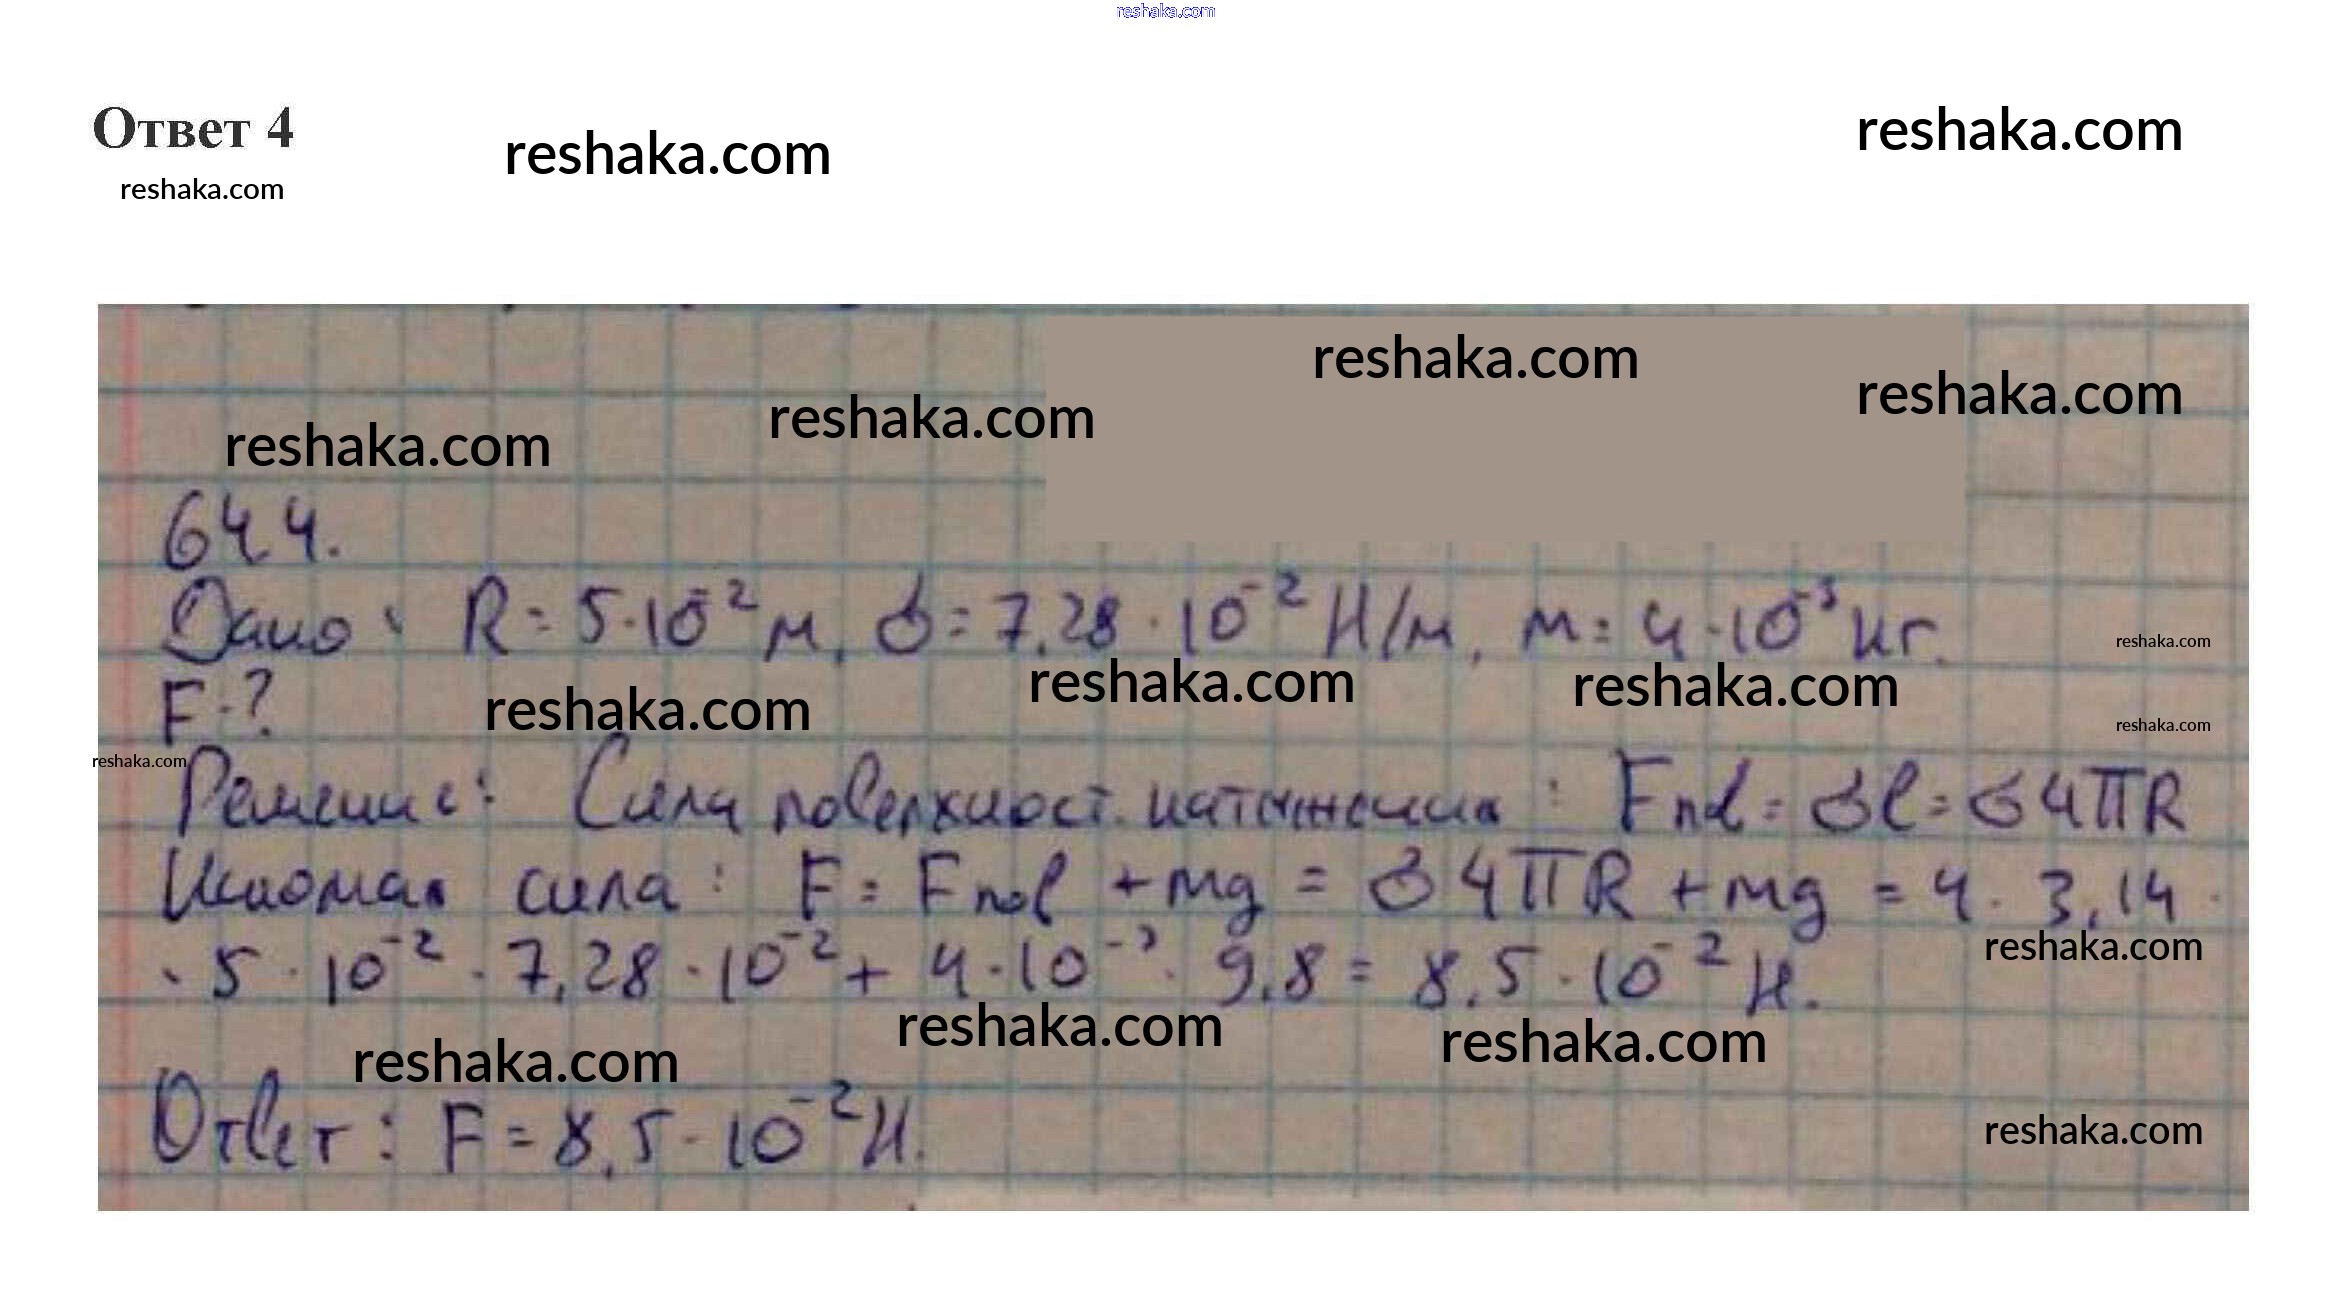 reshaka.com
Ответ 4
reshaka.com
reshaka.com
reshaka.com
reshaka.com
reshaka.com
reshaka.com
reshaka.com
64.4.
Дано: R = 5·10⁻² м, σ = 7,28 · 10⁻² Н/м, m = 4·10⁻³ кг.
reshaka.com
F-?
reshaka.com
reshaka.com
reshaka.com
reshaka.com
reshaka.com
Решение: Сила поверхност. натяжения : Fпов = σl = σ4πR
Искомая сила : F = Fпов + mg = σ4πR + mg = 4 · 3,14 ·
· 5 · 10⁻² · 7,28 · 10⁻² + 4 · 10⁻³ · 9,8 = 8,5 · 10⁻² Н.
reshaka.com
reshaka.com
reshaka.com
reshaka.com
Ответ : F = 8,5 · 10⁻² Н.
reshaka.com